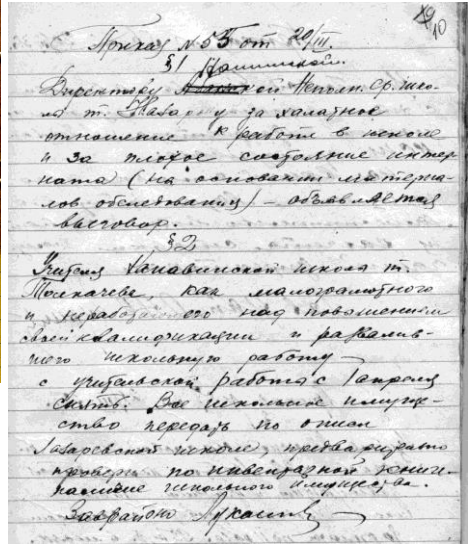 10
Приказ № 55 от 20/III.
§ 1
Директору кой Неполн. Ср. шко-
лы т. за халатное
отношение к работе в школе
и за плохое состояние интер-
ната (на основании материа-
лов обследования) – объявляется
выговор.
§ 2
Учителя школы т.
Толкачева, как малограмотного
и неработающего над повышением
своей квалификации и развалив-
шего школьную работу –
с учительской работы с 1 апреля
снять. Все школьное имуще-
ство передать по описи
школе, предварительно
проверив по инвентарной книге
школьного имущества.
Заврайоно